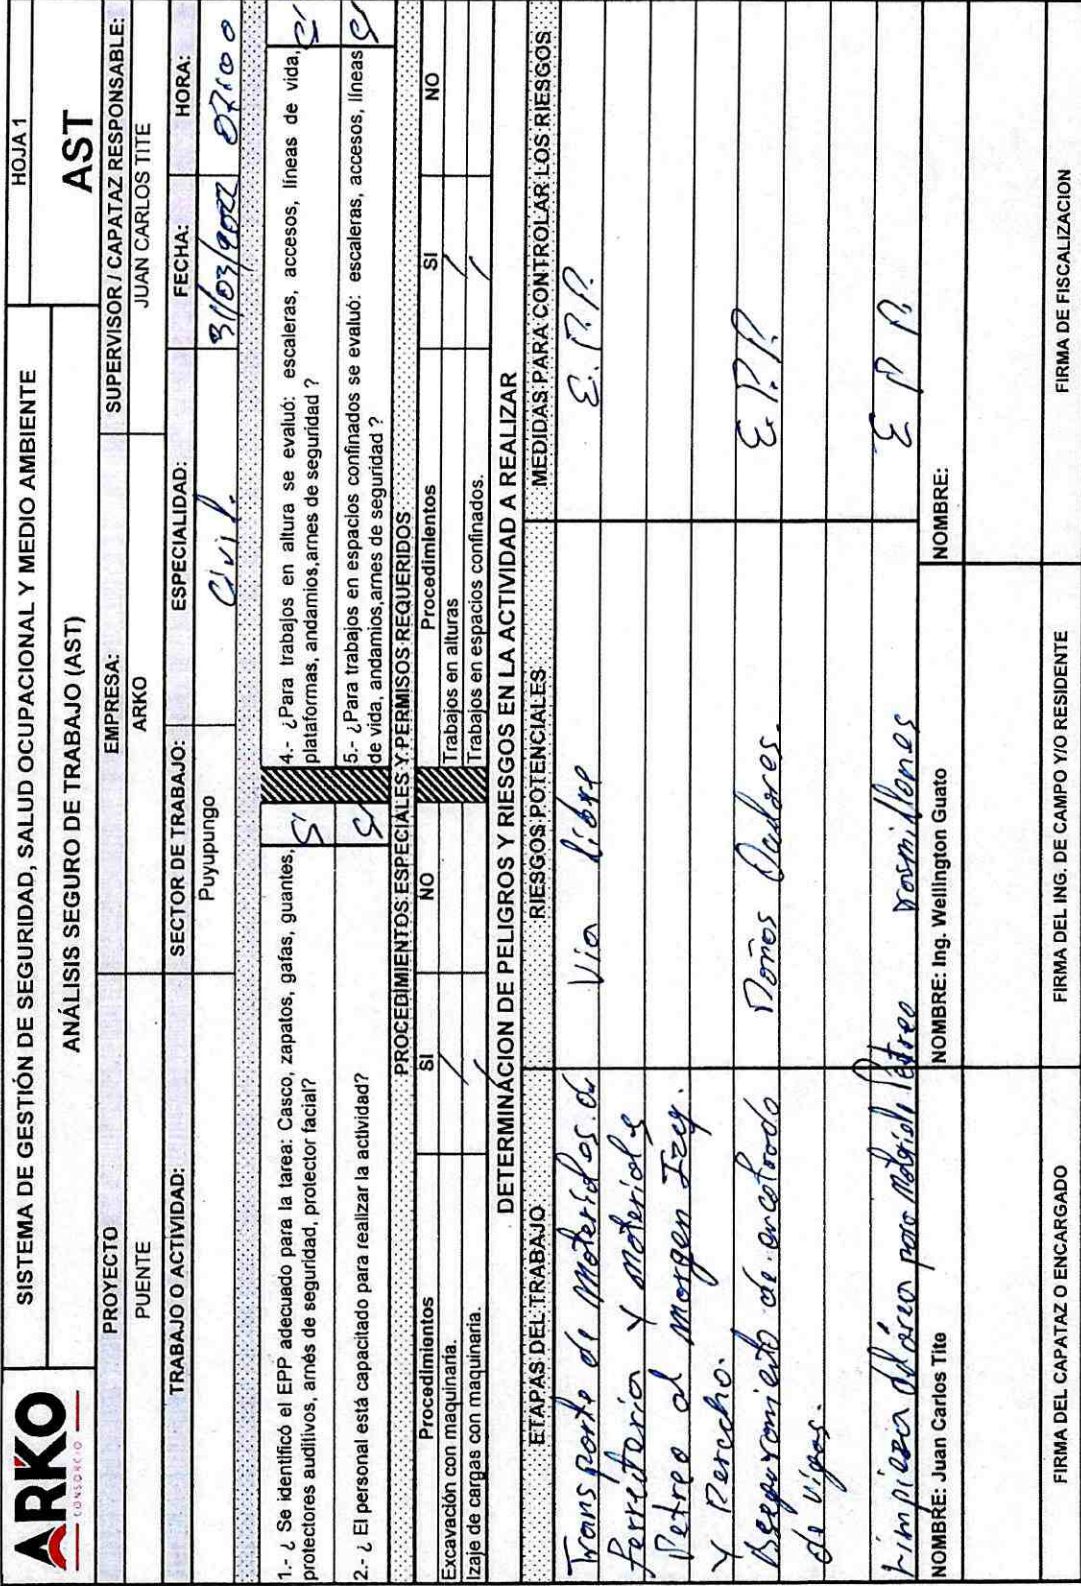 ARKO
CONSORCIO
SISTEMA DE GESTIÓN DE SEGURIDAD, SALUD OCUPACIONAL Y MEDIO AMBIENTE
HOJA 1
ANÁLISIS SEGURO DE TRABAJO (AST)
AST
PROYECTO
EMPRESA:
SUPERVISOR / CAPATAZ RESPONSABLE:
PUENTE
ARKO
JUAN CARLOS TITE
TRABAJO O ACTIVIDAD:
SECTOR DE TRABAJO:
ESPECIALIDAD:
FECHA:
HORA:
Puyupungo
Civil.
31/03/2022
07:00
1.- ¿ Se identificó el EPP adecuado para la tarea: Casco, zapatos, gafas, guantes,
protectores auditivos, arnés de seguridad, protector facial?
Si
4.- ¿Para trabajos en altura se evaluó: escaleras, accesos, líneas de vida,
plataformas, andamios,arnes de seguridad ?
Si
2.- ¿ El personal está capacitado para realizar la actividad?
Si
5.- ¿Para trabajos en espacios confinados se evaluó: escaleras, accesos, líneas
de vida, andamios,arnes de seguridad ?
Si
PROCEDIMIENTOS ESPECIALES Y PERMISOS REQUERIDOS
Procedimientos
SI
NO
Procedimientos
SI
NO
Excavación con maquinaria.
/
Trabajos en alturas
/
Izaje de cargas con maquinaria.
/
Trabajos en espacios confinados.
/
DETERMINACION DE PELIGROS Y RIESGOS EN LA ACTIVIDAD A REALIZAR
ETAPAS DEL TRABAJO
RIESGOS POTENCIALES
MEDIDAS PARA CONTROLAR LOS RIESGOS
Transporte de Materiales de
Via Libre
E.P.P.
ferreteria y Materiales
Petreo al Margen Izq.
y Derecho.
Aseguramiento de encofrado
E.P.P.
de Vigas.
Limpieza para Petreo
E P P.
NOMBRE: Juan Carlos Tite
NOMBRE: Ing. Wellington Guato
NOMBRE:
FIRMA DEL CAPATAZ O ENCARGADO
FIRMA DEL ING. DE CAMPO Y/O RESIDENTE
FIRMA DE FISCALIZACION